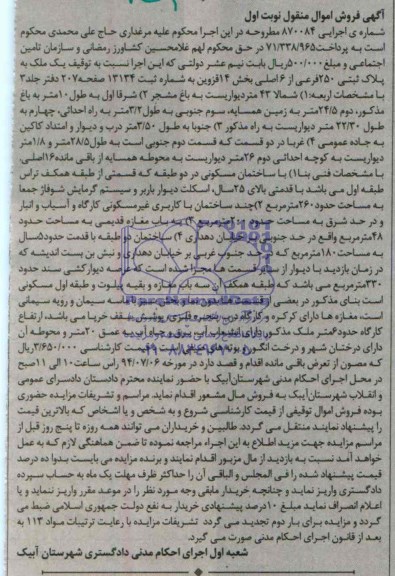 آگهی فروش اموال منقول نوبت اول
شماره ی اجرایی ۸۷۰۰۸۴ مطروحه در این اجرا محکوم علیه مرغداری حاج علی محمدی محکوم
است به پرداخت۷۱/۳۳۸/۹۶۵ در حق محکوم لهم غلامحسین کشاورز رمضانی و سازمان تامین
اجتماعی و مبلغ۵۰۰/۰۰۰ریال بابت نیم عشر دولتی که این اجرا نسبت به توقیف یک ملک به
پلاک ثبتی ۲۵۰فرعی از ۶اصلی بخش ۱۴قزوین به شماره ثبت ۱۳۱۳۴ صفحه۲۰۷ دفتر جلد۳
با مشخصات اربعه:۱) شمالا ۴۳ متردیواریست به باغ مشجر ۲) شرقا اول به طول۱۰متر به باغ
مذکور، دوم ۲۴/۵متر به زمین همسایه، سوم جنوبی به طول۳/۲متر به راه احداثی، چهارم به
طول ۲۲/۳۰ متر دیواریست به راه مذکور ۳) جنوبا به طول ۳/۵۰متر درب و دیوار و امتداد کاکین
به جاده عمومی ۴) غربا در دو قسمت که قسمت دوم جنوبی است به طول۲۸/۵متر و ۱/۸متر
دیواریست به کوچه احداثی دوم ۲۶متر دیواریست به محوطه همسایه از باقی مانده۱۶اصلی.
با مشخصات فنی بنا۱) با ساختمان مسکونی در دو طبقه که قسمتی از طبقه همکف تراس
طبقه اول می باشد با قدمتی بالای ۲۵سال، اسکلت دیوار باربر و سیستم گرمایش شوفاژ جمعا
به مساحت حدود۲۶۰مترمربع ۲)چند ساختمان با کاربری غیرمسکونی کارگاه و آسیاب و انبار
و در حد شرق به مساحت حدود مترمربع ۳) به باب مغازه قدیمی به مساحت حدود
۴۸مترمربع واقع در حد جنوبی خیابان دهداری ۴) ساختمان دو طبقه با قدمت حدود۵سال
به مساحت ۱۸۰مترمربع که حد جنوب غربی بر خیابان دهداری و نبش بن بست اندیشه که
در زمان بازدید با دیوار از سایر قسمت ها مجزا شده است که عرصه دیوارکشی سند حدود
۳۳۰مترمربع می باشد که طبقه همکف سه باب مغازه و بقیه پیلوت و طبقه اول مسکونی
است بنای مذکور در بعضی از قسمت ها بدون نما و بخشی سیمان و رویه سیمانی
است، مغازه ها دارای کرکره و کارگاه درب پنجره فلزی پوشش سقف خرپا می باشد، ارتفاع
کارگاه حدود۶متر ملک مذکور دارای انشعاب آب برق و چاه آب به عمق ۲۰متر و محوطه آن
دارای درختان شهر و درخت انگور و بوته قیمت کارشناسی ۳/۶۵۰/۰۰۰ریال
که مصون از تعرض باقی مانده اقدام و قصد دارد در مورخه ۹۴/۰۷/۰۶ راس ساعت۱۰ الی ۱۱صبح
در محل اجرای احکام مدنی شهرستان آبیک با حضور نماینده محترم دادستان دادسرای عمومی
و انقلاب شهرستان آبیک به فروش مال مشعور اقدام نماید. مراسم و تشریفات مزایده حضوری
بوده فروش اموال توقیفی از قیمت کارشناسی شروع و به شخص و یا اشخاص که بالاترین قیمت
را پیشنهاد نمایند منتقل می گردد. طالبیین و خریداران می توانند همه روزه تا پنج روز قبل از
مراسم مزایده جهت مزید اطلاع به این اجراء مراجعه نموده تا ضمن هماهنگی لازم که به عمل
خواهد آمد نسبت به بازدید از مال مزبور اقدام نمایند و برنده مزایده می بایست بدوا ده درصد
قیمت پیشنهاد شده را فی المجلس و الباقی آن را حداکثر ظرف مهلت یک ماه به حساب سپرده
دادگستری واریز نماید و چنانچه خریدار مابقی وجه مورد نظر را در موعد مقرر واریز ننماید و یا
اعلام انصراف نماید مبلغ ۱۰درصد پیشنهادی خریدار به نفع دولت جمهوری اسلامی ضبط می
گردد و مزایده برای بار دوم تجدید می گردد تشریفات مزایده با رعایت ترتیبات مواد ۱۱۳ به
بعد از قانون اجرای احکام مدنی صورت می گیرد.
شعبه اول اجرای احکام مدنی دادگستری شهرستان آبیک